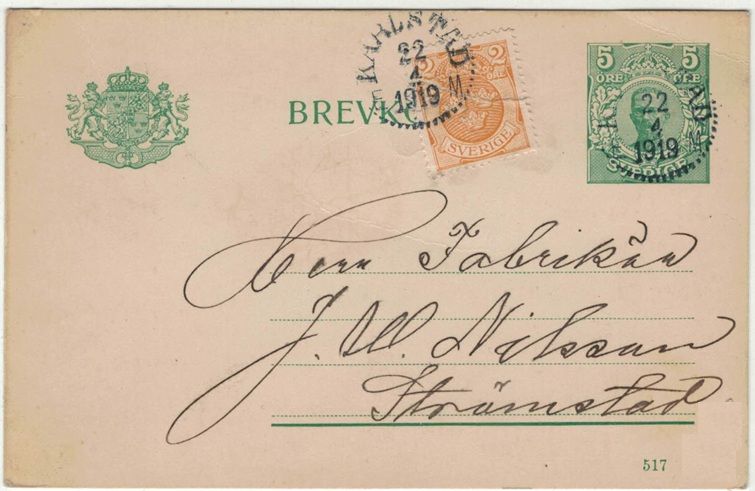 KARLSTAD
22
4
1919 M
2 2
ÖRE
SVERIGE
BREVKO
5 5
ÖRE ÖRE
22
4
1919
SVERIGE
Herr Fabrikör
J. W. Nilsson
Strömstad
517